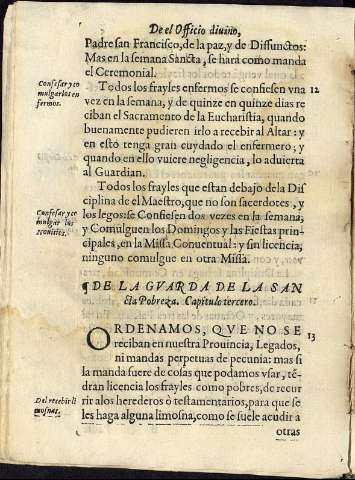 De el Officio diuino,
Padre san Francisco, de la paz, y de Diffunctos:
Mas en la semana Sancta, se hará como manda
el Ceremonial.
Confesar y co
mulgar los en
fermos.
Todos los frayles enfermos se confiesen vna
12
vez en la semana, y de quinze en quinze dias re
ciban el Sacramento de la Eucharistia, quando
buenamente pudieren irlo a recebir al Altar: y
en esto tenga gran cuydado el enfermero, y
quando en ello vuiere negligencia, lo aduierta
al Guardian.
Todos los frayles que estan debajo de la Dis
ciplina de el Maestro, que no son sacerdotes, y
Confesar y co
mulgar los
nouicios.
los legos: se Confiesen dos vezes en la semana,
y Comulguen los Domingos y las Fiestas prin-
cipales, en la Missa Conuentual: y sin licencia,
ninguno comulgue en otra Missa.
¶ DE LA GVARDA DE LA SAN
cta Pobreza. Capitulo tercero.
ORDENAMOS, QVE NO SE
13
reciban en nuestra Prouincia, Legados,
ni mandas perpetuas de pecunia: mas si
la manda fuere de cosas que podamos vsar, té-
dran licencia los frayles como pobres, de recur
Del recebir li
mosnas.
rir a los herederos ò testamentarios, para que se
les haga alguna limosna, como se suele acudir a
otras